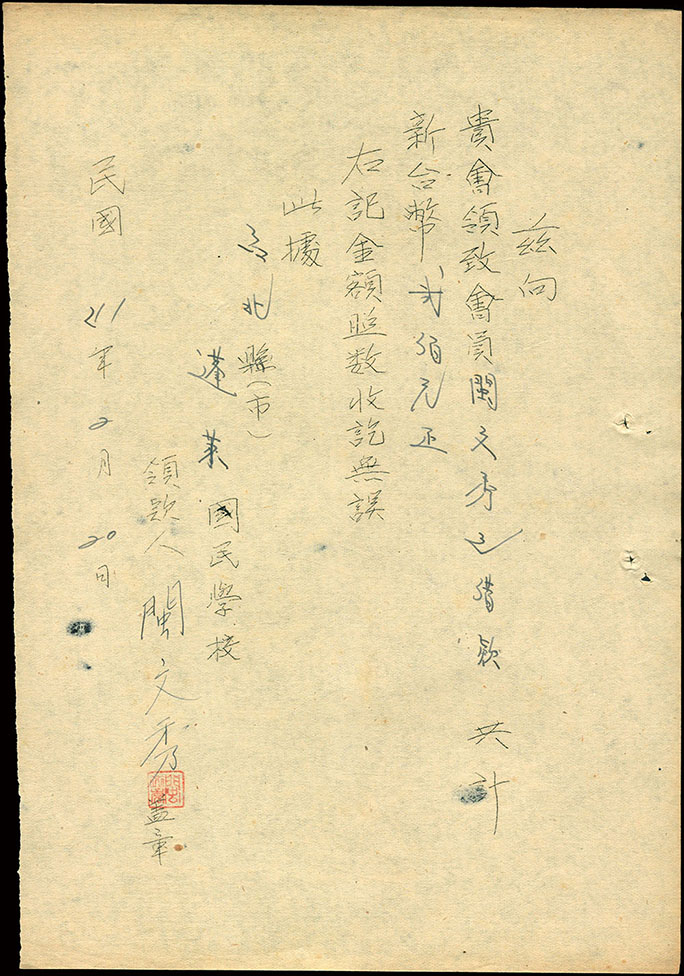 茲向
貴會領致會員閩文秀之借款 共計
新台幣貳佰元正
右記金額照数收訖無誤
此據
台北縣(市)
蓬萊國民學校
領款人 閩文秀 蓋章
民國 41年2月20日